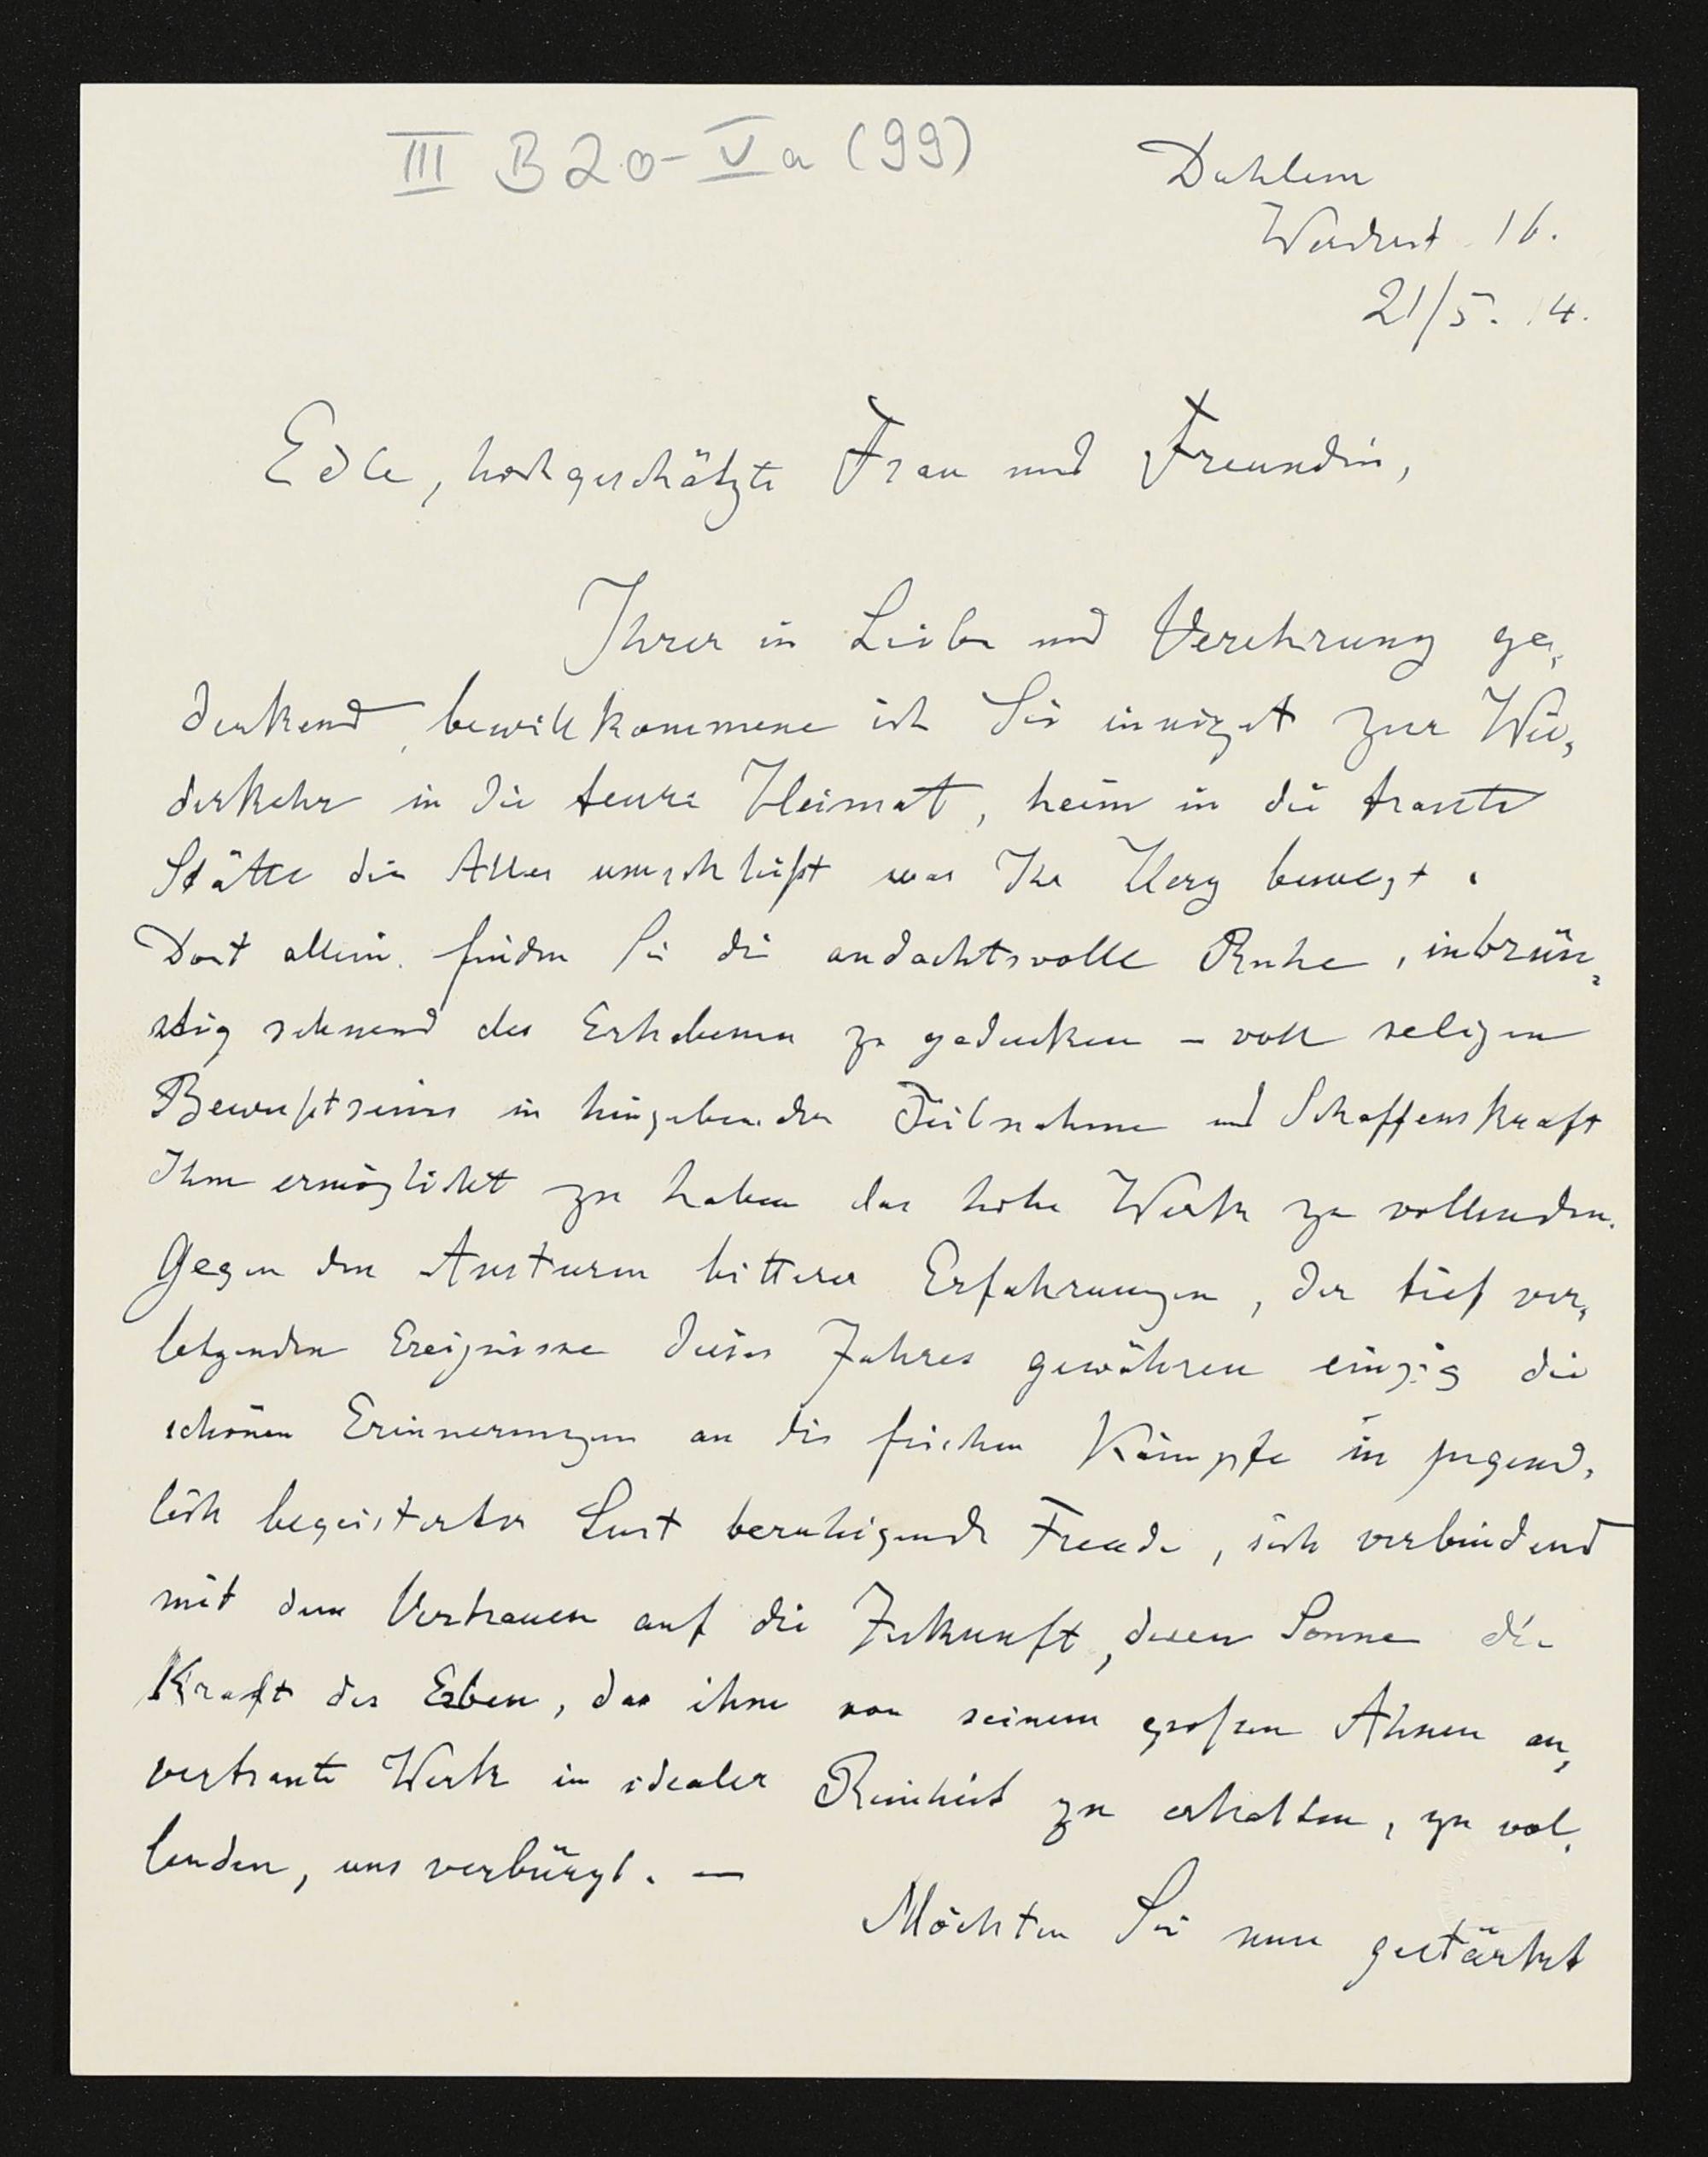 III B 20-Va (99)
Dahlem
16.
21/5. 14.
Edle, hochgeschätzte Frau und Freundin,
Ihrer in Liebe und Verehrung ge,
denkend, bewillkommene ich Sie innigst zur Wie,
derkehr in die teure Heimat, heim in die traute
Stätte die Alles umschließt was Ihr Herz bewegt.
Dort allein finden Sie die andachtsvolle Ruhe, inbrün,
stig sehnend des Erhabenen zu gedenken – voll seligen
Bewußtseins in hingebender Teilnahme und Schaffenskraft
Ihm ermöglicht zu haben das hohe Werk zu vollenden.
Gegen den Ansturm bitterer Erfahrungen, der tief ver,
letzenden Ereignisse dieses Jahres gewähren einzig die
schönen Erinnerungen an die frischen Kämpfe in jugend,
lich begeisterter Lust beruhigende Freude, sich verbindend
mit dem Vertrauen auf die Zukunft, deren Sonne die
Kraft des Erben, das ihm von seinem großen Ahnen an,
vertraute Werk in idealer Reinheit zu erhalten, zu vol,
lenden, uns verbürgt. —
Möchten Sie nun gestärkt